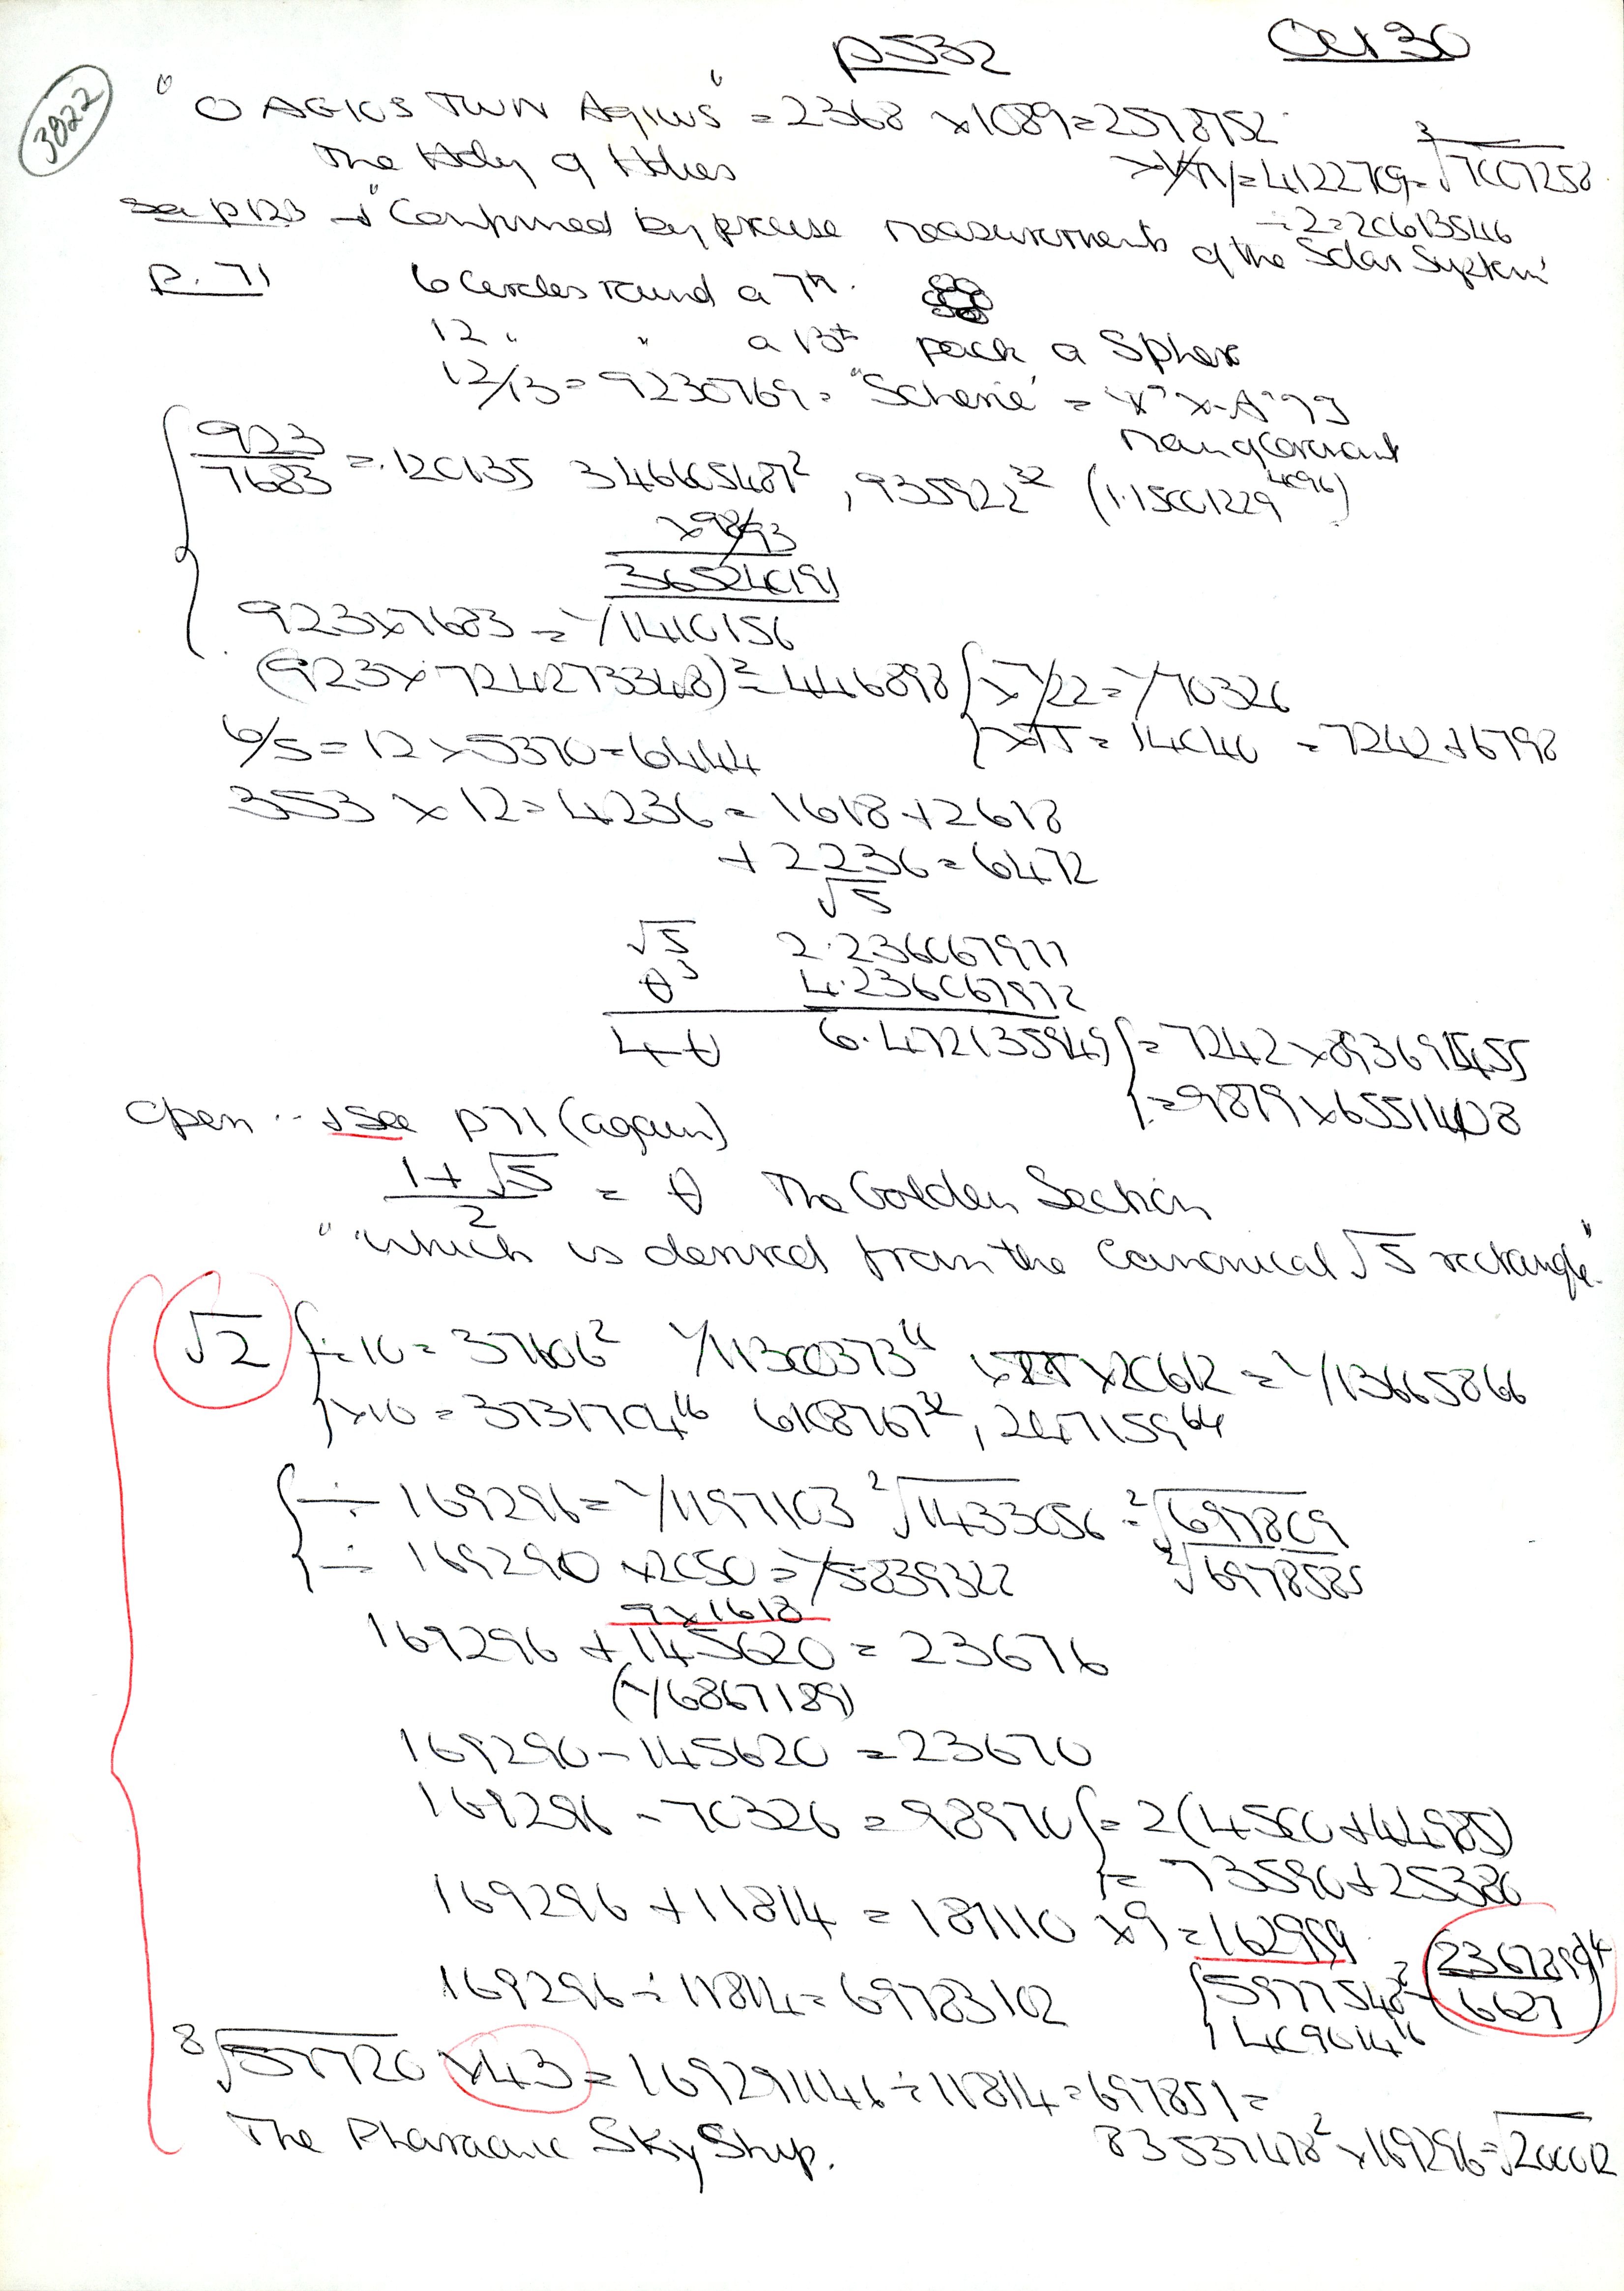 p532 Oct 30
3822
"O AGIOS TWN Agiws" = 2368 x1089=2578752
The Holy of Holies = 4122709=³√7007258
See p123 → "Confirmed by precise measurements of the Solar System"
÷2=20613546
p. 71 6 Circles round a 7th.
12 " " a 13th pack a Sphere
12/13= 9230769= "Scheme" =
923/7683 =.120135 346605487², 935922³² (1.15001229⁴⁰⁹⁶)
x98/93
36524091
923x7683 = 1/1410156
(923x724273348)²=446898 { x7/22=1/70326
6/5=12x5370=6444 { xπ = 14040 =7242+6798
353 x12=4236= 1618+2618
+2236=6472
√5
√5 2.236067977
θ³ 4.236067972
4θ 6.472135949 {=7242x893691455
{=9879x6551408
open → See p71 (again)
1+√5/2 = θ The Golden Section
"which is derived from the Canonical √5 rectangle."
√2 {÷10= 37606² 1/11300373¹⁶ x20612 = 1/13665866
{x10=3731704¹⁶ 6108767³², 247159⁶⁴
{÷ 169296=1/1197103 ²√1433056 = ²√697809
{÷ 169290 x2050=1/5839322 ²√6978585
9x1618
169296 + 145620 = 23676
(1/6867189)
169290-145620 =23670
169296 - 70326 = 98970 {=2(4500+44985)
{= 73590+25380
169296 +11814 = 181110 x9=162999
169296÷11814=69783102 {5977548² = (2367899/6627)⁴
{409614¹⁶
⁸√57720 x43= 1692911146÷11814=697851=
The Pharaonic SkyShip. 83537478²x169296=√20002